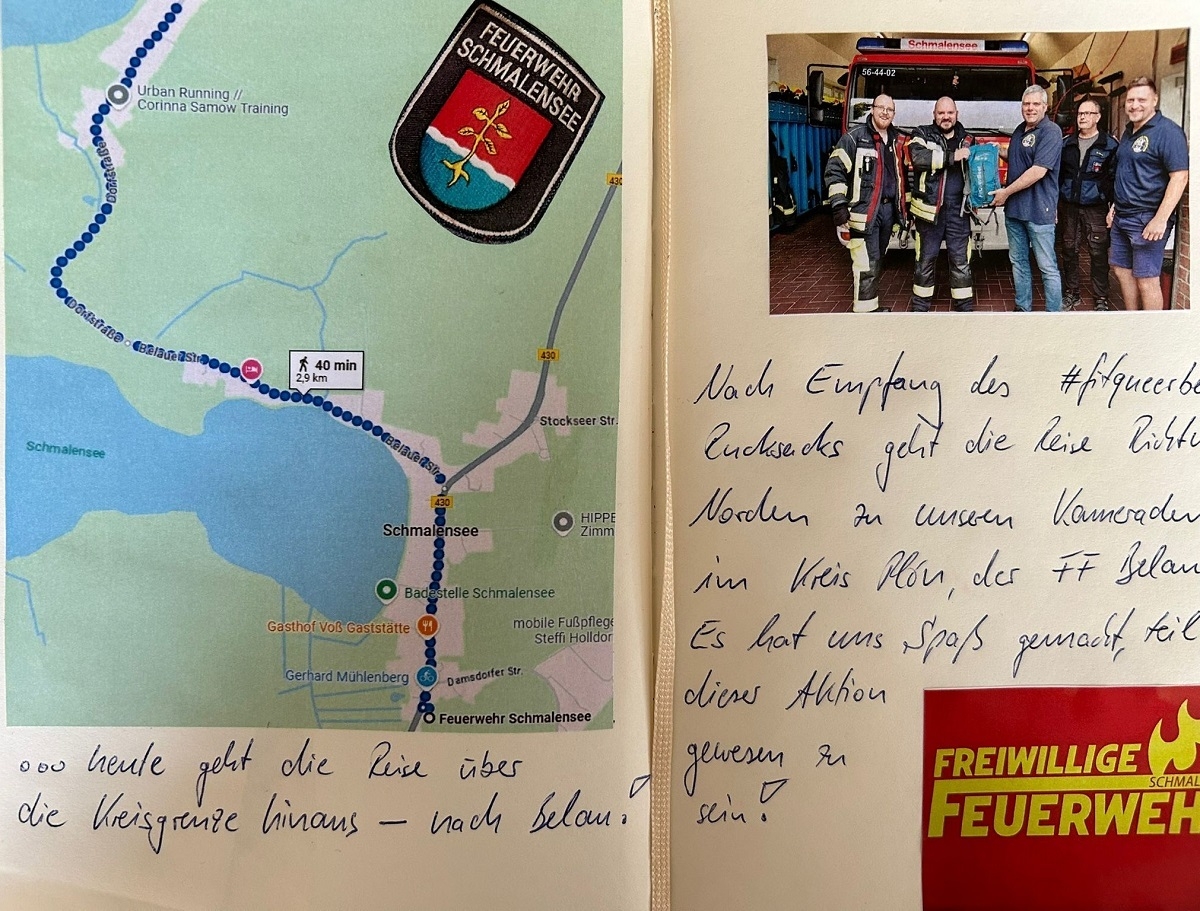 Urban Running //
Corinna Samow Training
FEUERWEHR
SCHMALENSEE
430
Dorfstraße
Dorfstraße
Belauer Str.
40 min
2,9 km
430
Stockseer Str.
Schmalensee
Belauer Str.
430
Schmalensee
HIPPE
Zimm
Badestelle Schmalensee
Gasthof Voß Gaststätte
mobile Fußpflege
Steffi Holldor
Gerhard Mühlenberg
Damsdorfer Str.
Feuerwehr Schmalensee
ooo heute geht die Reise über
die Kreisgrenze hinaus – nach Belau!
Schmalensee
56-44-02
Nach Empfang des #fitqueerbe
Rucksacks geht die Reise Richtu
Norden zu unseren Kameraden
im Kreis Plön, der FF Belau
Es hat uns Spaß gemacht, teil
dieser Aktion
gewesen zu
sein!
FREIWILLIGE
SCHMAL
FEUERWEH